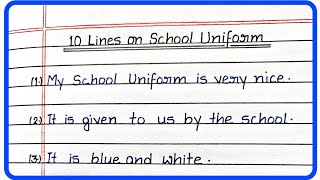 10 Lines on School Uniform
(1.) My School Uniform is very nice.
(2.) It is given to us by the school.
(3.) It is blue and white.